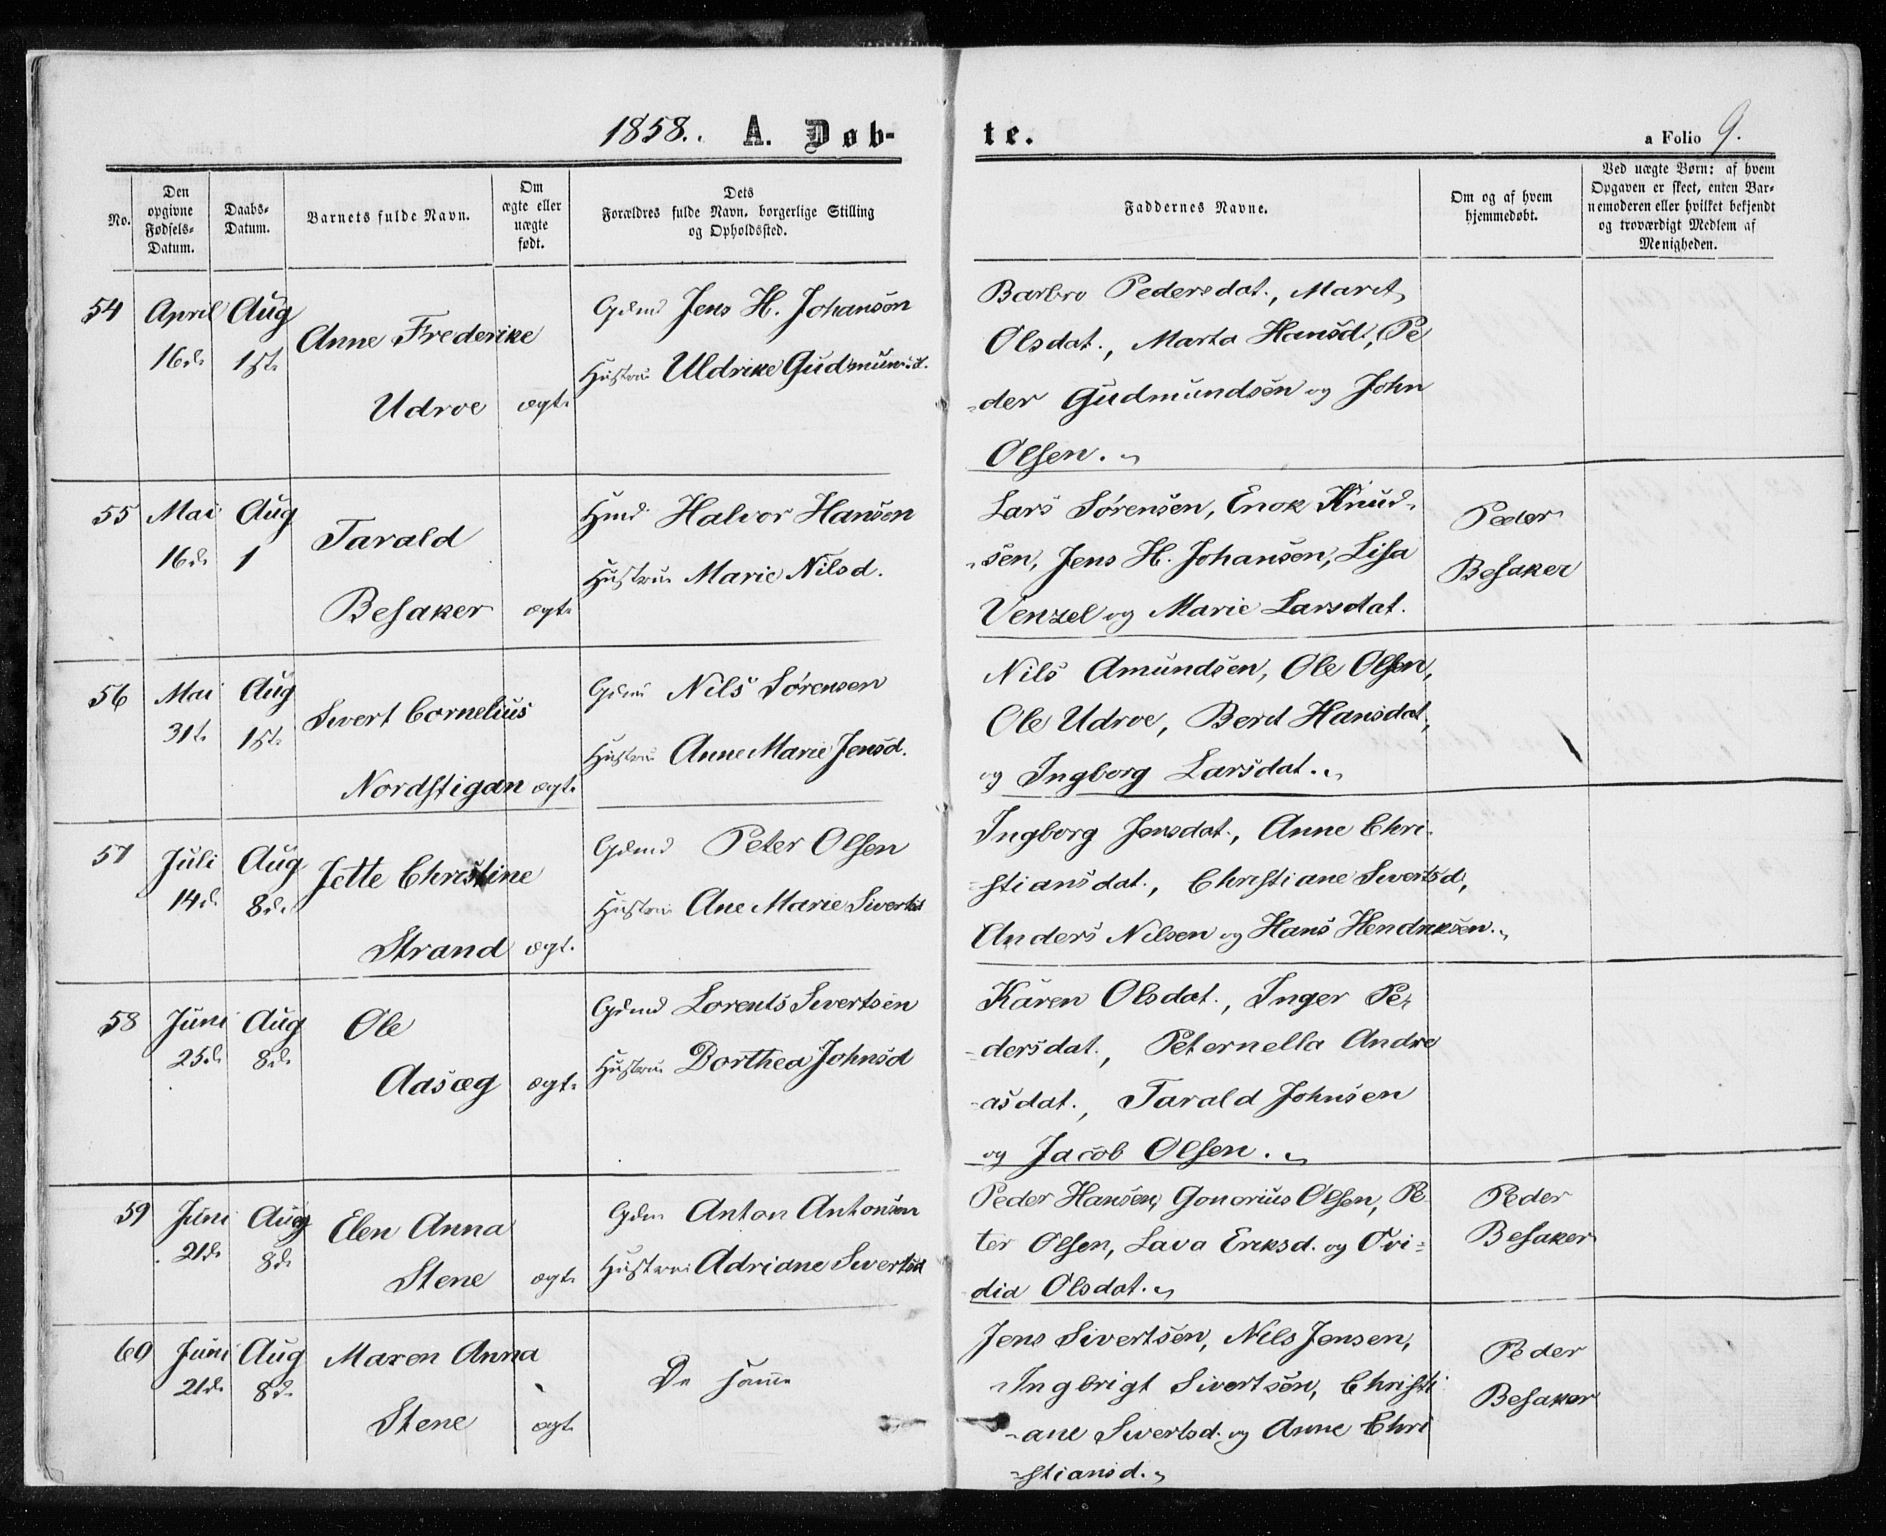 1858. A. Døb-
te.
a Folio 9.
No.
Den
opgivne
Fødsels-
Datum.
Daabs-
Datum.
Barnets fulde Navn.
Om
ægte eller
uægte
født.
Dets
Forældres fulde Navn, borgerlige Stilling
og Opholdssted.
Faddernes Navne.
Om og af hvem
hjemmedøbt.
Ved uægte Børn: af hvem
Opgaven er skeet, enten Bar-
nemoderen eller hvilket bekjendt
og troværdigt Medlem af
Menigheden.
54
April
16d.
Aug
1st.
Anne Frederike
Udroe
ægt.
Gdmd Jens H. Johansøn
Hustru Uldrike Gudmundsd.
Barbro Pedersdat., Maret
Olsdat., Marta Hansd., Pe
-der Gudmundsen og John
Olsen.
55
Mai
16d.
Aug
1
Tarald
Besaker
ægt.
Hmd. Halvor Hansen
Hustrue Marie Nilsd.
Lars Sørensen, Enok Knud-
-sen, Jens H. Johansen, Lisa
Venzel og Marie Larsdat.
Peder
Besaker
56
Mai
31t.
Aug
1st.
Sivert Cornelius
Nordstigan
ægt.
Gdmd Nils Sørensen
Hustrue Anne Marie Jensd.
Nils Amundsen, Ole Olsen,
Ole Udroe, Berit Hansdat,
og Ingborg Larsdat.
57
Juli
14d.
Aug
8d.
Jette Christine
Strand
ægt.
Gdmd Peter Olsen
Hustrue Ane Marie Sivertsd
Ingborg Jensdat., Anne Chri-
-stiansdat., Christiane Sivertsd,
Anders Nilsen og Hans Hendriksen.
58
Juni
25d.
Aug
8d.
Ole
Aasæg
ægt.
Gdmd Lorents Sivertsen
Hustrue Dorthea Johnsd
Karen Olsdat., Inger Pe-
-dersdat., Peternella Andre
-asdat., Tarald Johnsen
og Jacob Olsen.
59
Juni
21d.
Aug
8d.
Elen Anna
Stene
ægt.
Gdm Anton Antonsen
Hustrue Adriane Sivertsd
Peder Hansen, Gonorius Olsen, Pe
ter Olsen, Lava Eriksd. og Ovi-
dia Olsdat.
Peder
Besaker
60
Juni
21d.
Aug
8d.
Maren Anna
Stene
ægt
De samme
Jens Sivertsen, Nils Jensen,
Ingbrigt Sivertsen, Christi
-ane Sivertsd. og Anne Chri
-stiansd.
Peder
Besaker